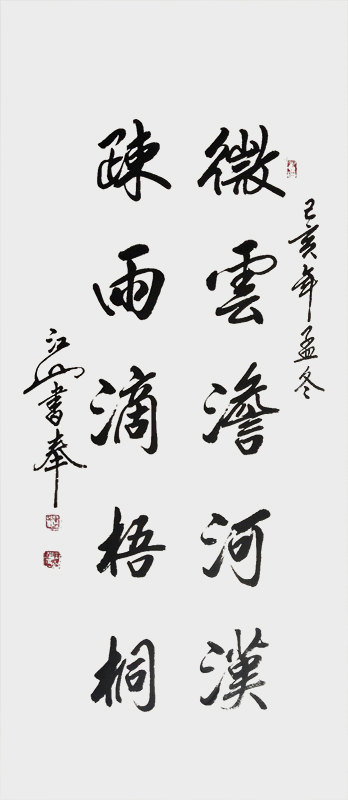 己亥年孟冬
微雲澹河漢
疎雨滴梧桐
江山書奉